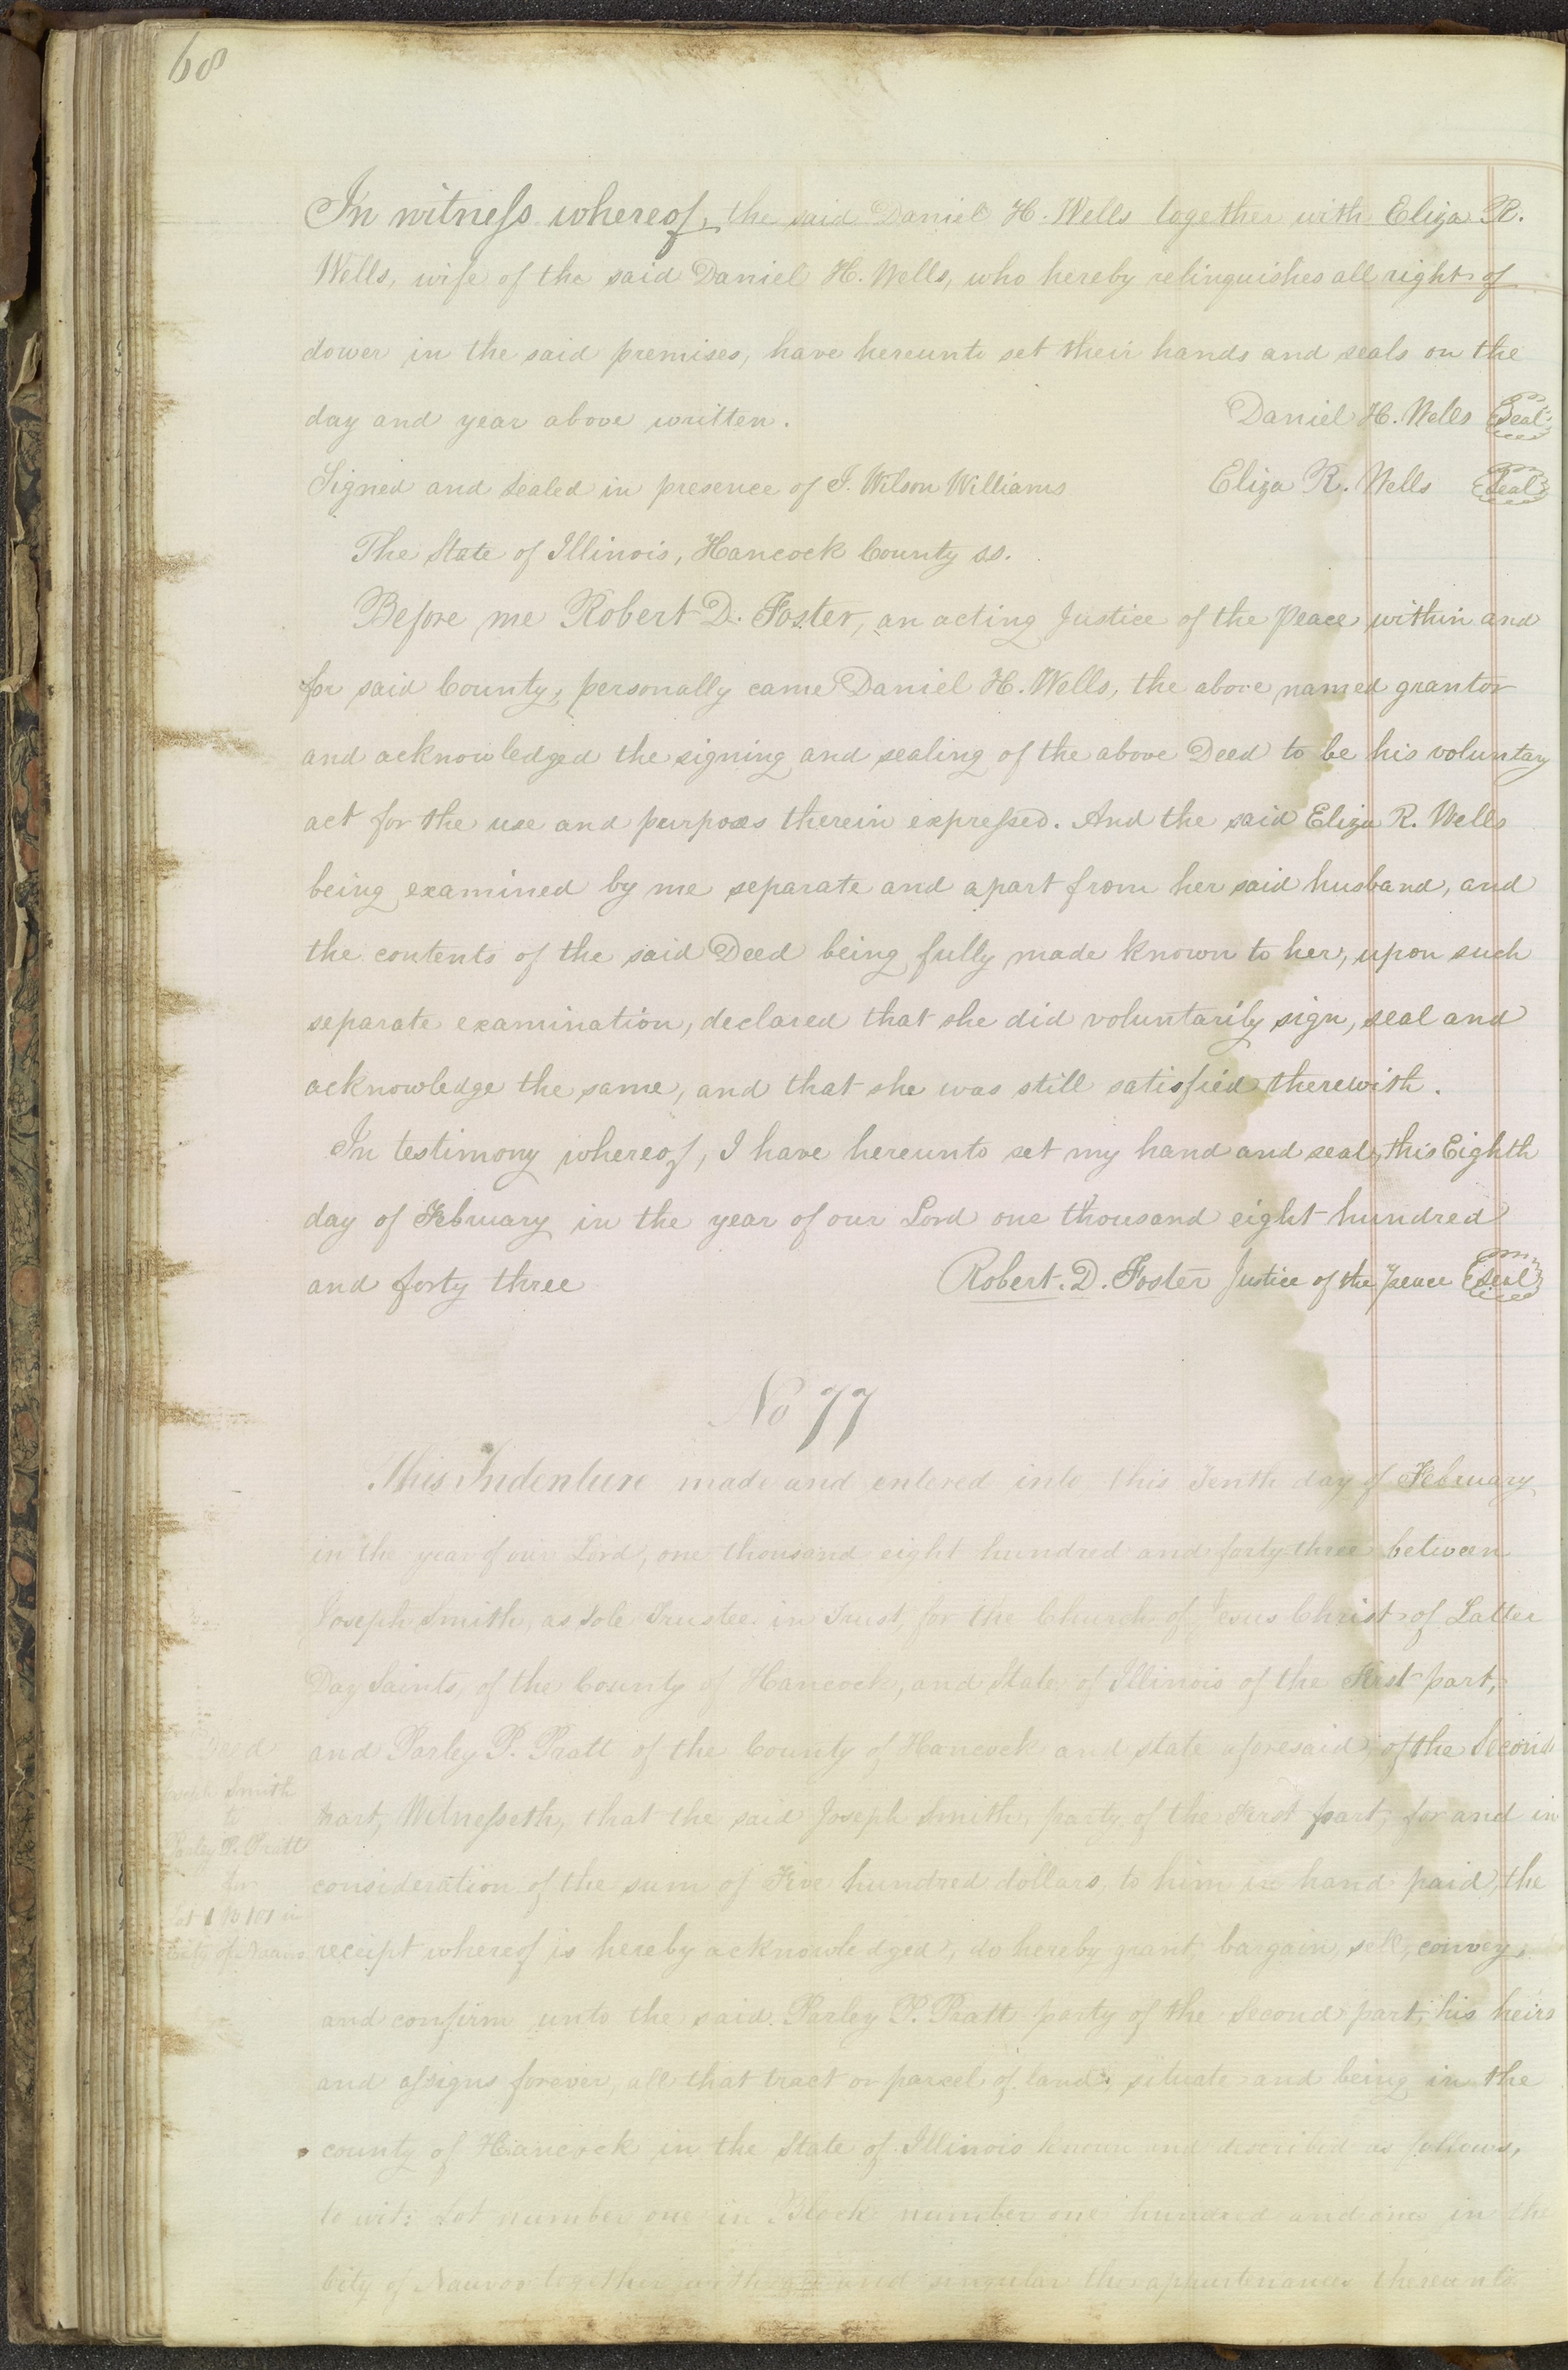 68
In witness whereof, the said Daniel H. Wells together with Eliza R.
Wells, wife of the said Daniel H. Wells, who hereby relinquishes all right of
dower in the said premises, have hereunto set their hands and seals on the
day and year above written. Daniel H. Wells Seal
Signed and sealed in presence of J. Wilson Williams Eliza R. Wells Seal
The State of Illinois, Hancock County ss.
Before me Robert D. Foster, an acting Justice of the Peace within and
for said County, personally came Daniel H. Wells, the above named grantor
and acknowledged the signing and sealing of the above Deed to be his voluntary
act for the use and purposes therein expressed. And the said Eliza R. Wells
being examined by me separate and apart from her said husband, and
the contents of the said Deed being fully made known to her, upon such
separate examination, declared that she did voluntarily sign, seal and
acknowledge the same, and that she was still satisfied therewith.
In testimony whereof, I have hereunto set my hand and seal, this Eighth
day of February in the year of our Lord one thousand eight hundred
and forty three Robert. D. Foster Justice of the peace Seal
No 77
This Indenture made and entered into this Tenth day of February
in the year of our Lord, one thousand eight hundred and forty three between
Joseph Smith, as Sole Trustee in Trust, for the Church of Jesus Christ of Latter
Day Saints, of the County of Hancock, and State of Illinois of the First part,
and Parley P. Pratt of the County of Hancock and state aforesaid, of the Second
part, Witnesseth, that the said Joseph Smith, party of the First part, for and in
consideration of the sum of Five hundred dollars, to him in hand paid, the
receipt whereof is hereby acknowledged, do hereby grant, bargain, sell, convey,
and confirm unto the said Parley P. Pratt party of the Second part, his heirs
and assigns forever, all that tract or parcel of land, situate and being in the
county of Hancock in the State of Illinois known and described as follows,
to wit: Lot number one in Block number one hundred and one in the
City of Nauvoo together with all and singular the appurtenances thereunto
Deed
Joseph Smith
to
Parley P. Pratt
for
Lot 1 in
City of